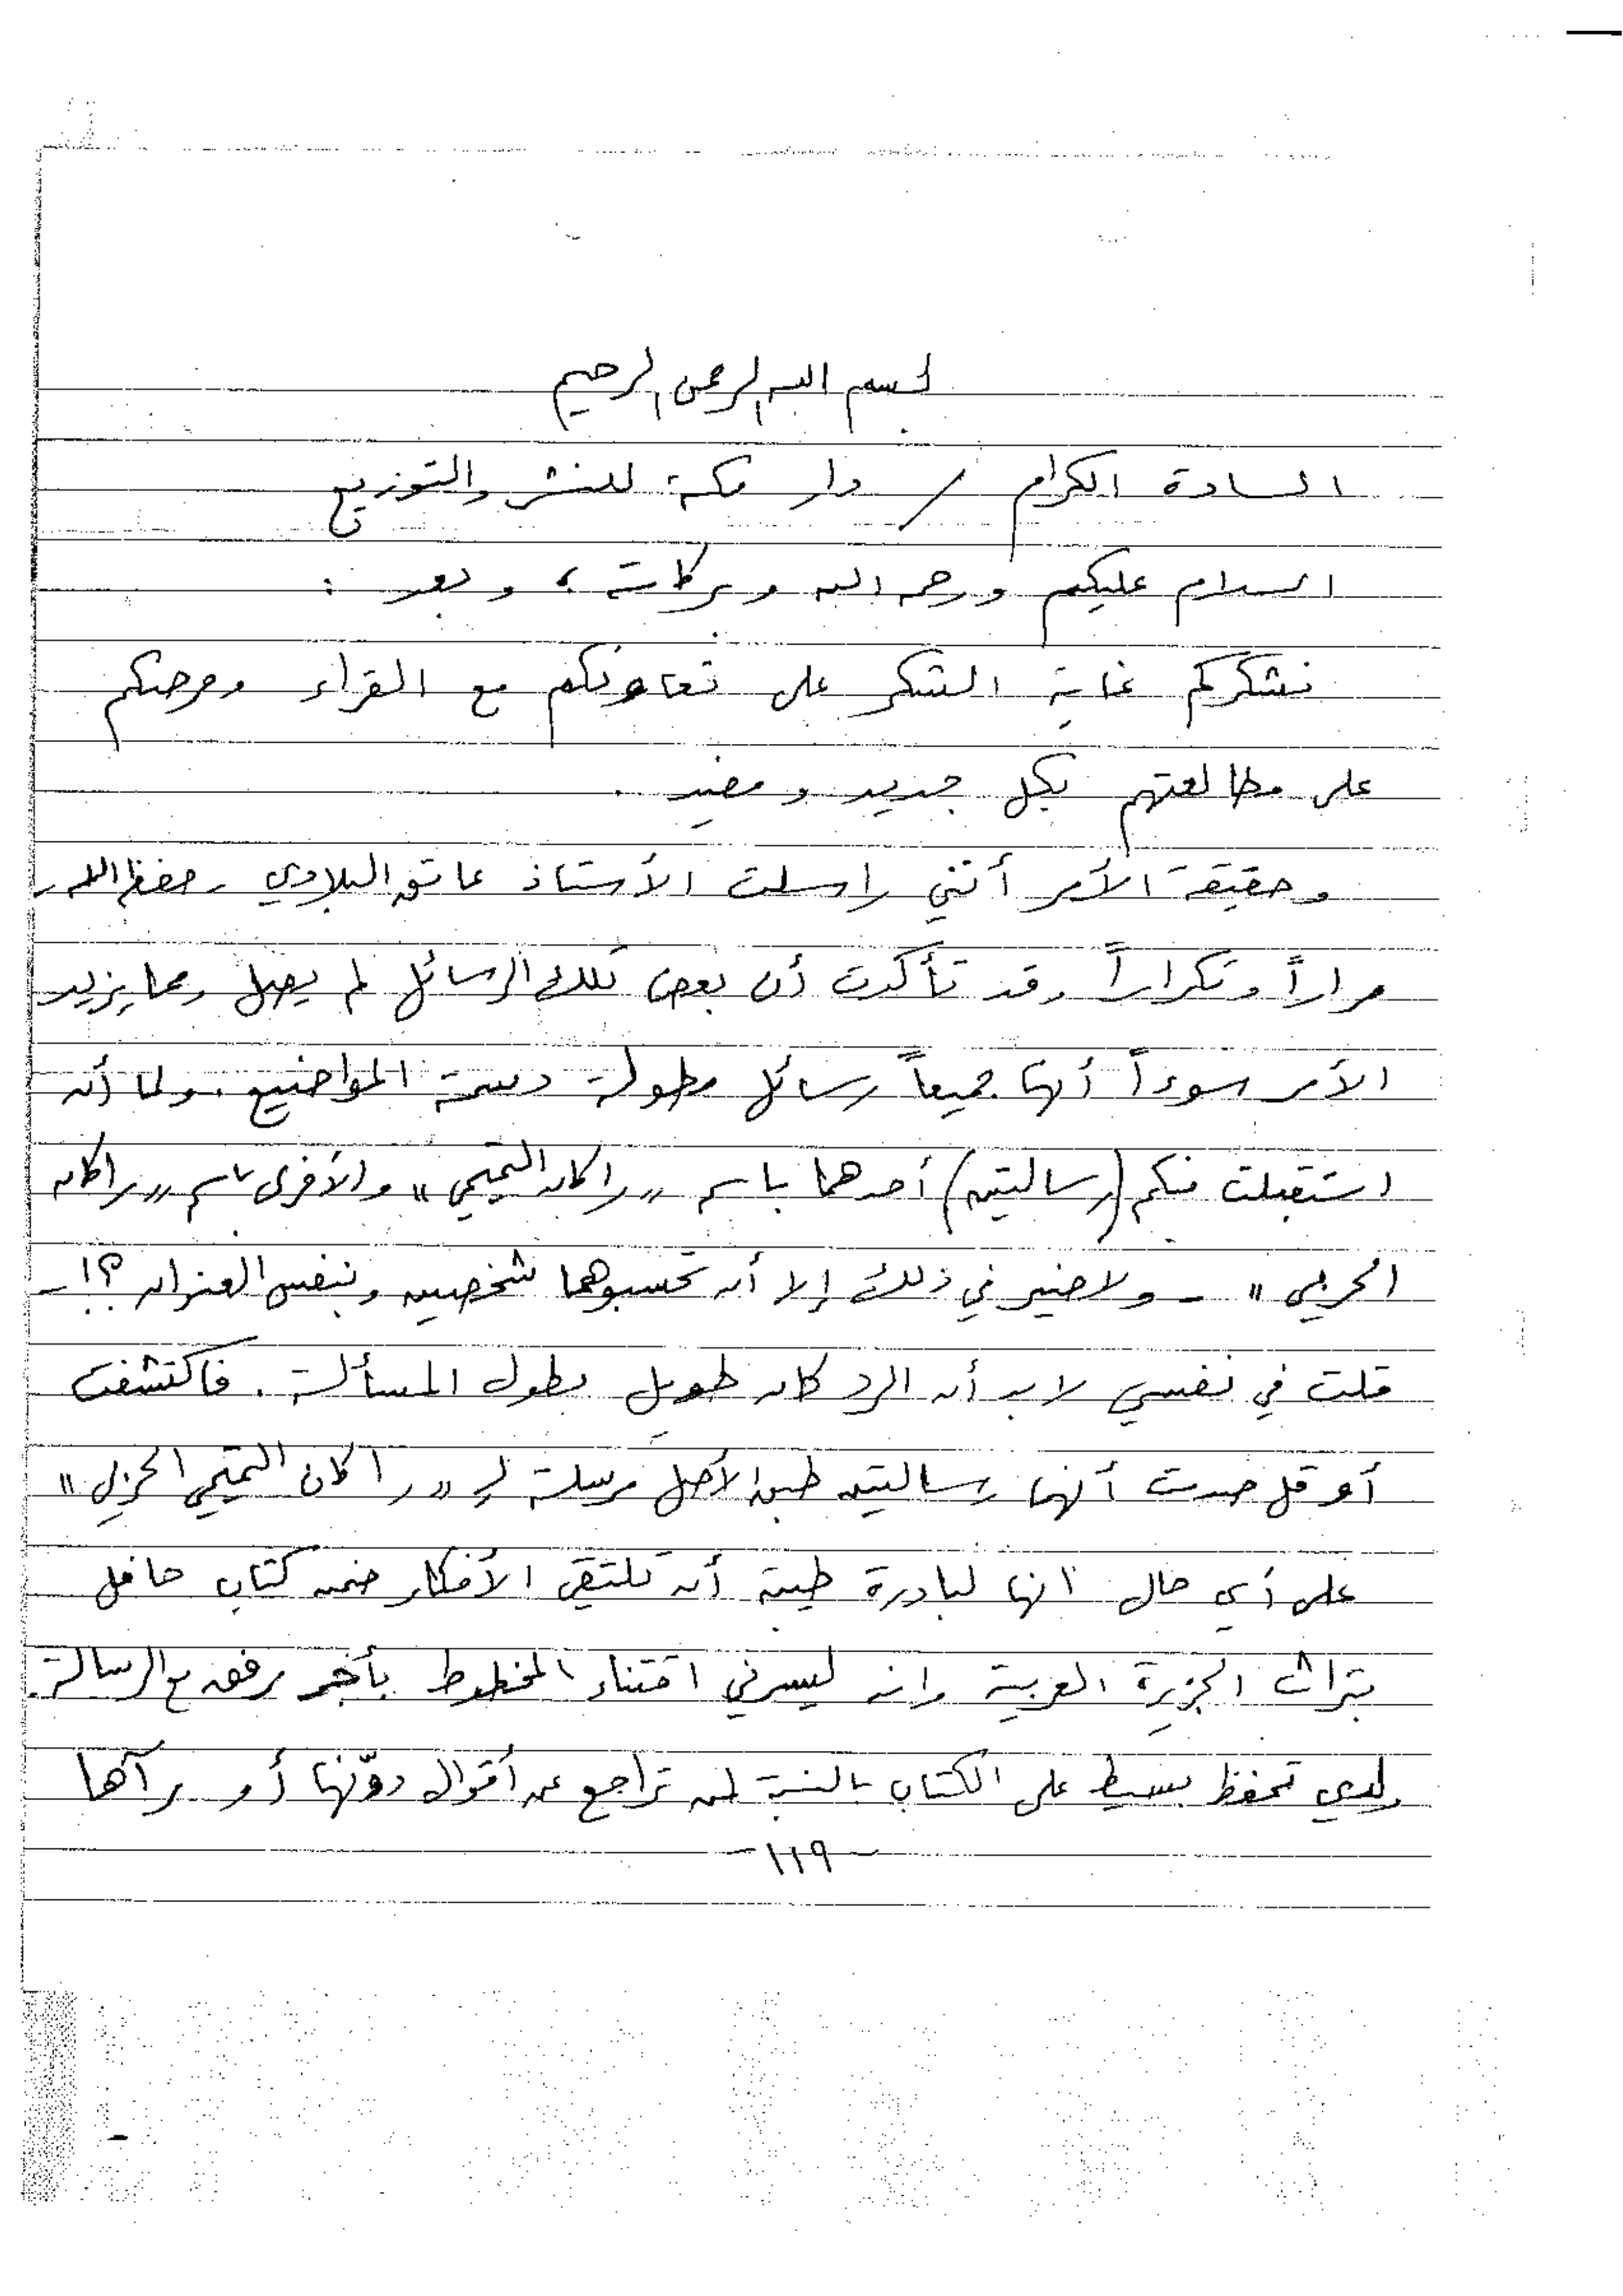 بسم الله الرحمن الرحيم
السادة الكرام / دار مكة للنشر والتوزيع
السلام عليكم ورحمة الله وبركاته ، وبعد :
نشكركم غاية الشكر على تعاونكم مع القراء وحرصكم
على مطالعتهم بكل جديد ومفيد .
وحقيقة الأمر أنني راسلت الأستاذ عاتق البلادي - حفظه الله -
مراراً وتكراراً وقد تأكدت أن بعض تلك الرسائل لم يصل ومما يزيد
الأمر سوءاً أنها جميعاً رسائل مطولة دسمة المواضيع . ولما أن
استقبلت منكم (رسالتين) أحدهما باسم „ راكان التميمي " والأخرى باسم „ راكان
الحربي " - ولا ضير في ذلك إلا أن تحسبوهما شخصين وبنفس العنوان ؟! -
قلت في نفسي لابد أن الرد كان طويل بطول المسألة . فاكتشفت
أو قل صدت أنهما رسالتين طبق الأصل مرسلة لـ „ راكان التميمي الحربي "
على أي حال انها لبادرة طيبة أن تلتقي الأفكار ضمن كتاب حافل
بتراث الجزيرة العربية وانه ليسرني اقتناء المخطوط بأجر مرفق مع الرسالة .
ولدي تحفظ بسيط على الكتاب بالنسبة لمن تراجع عن أقوال دوّنها أو رآها
- ١١٩ -